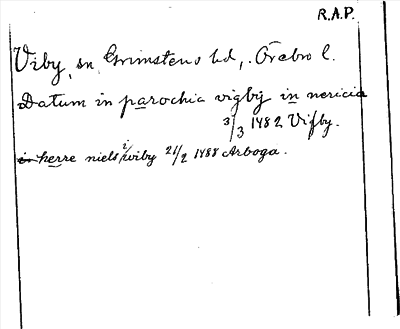 R.A.P.
Viby, sn, Grimstens hd, Örebro l.
Datum in parochia vigby in nericia
3/3 1482 Vifby.
herre niels i wiby 21/2 1488 Arboga.